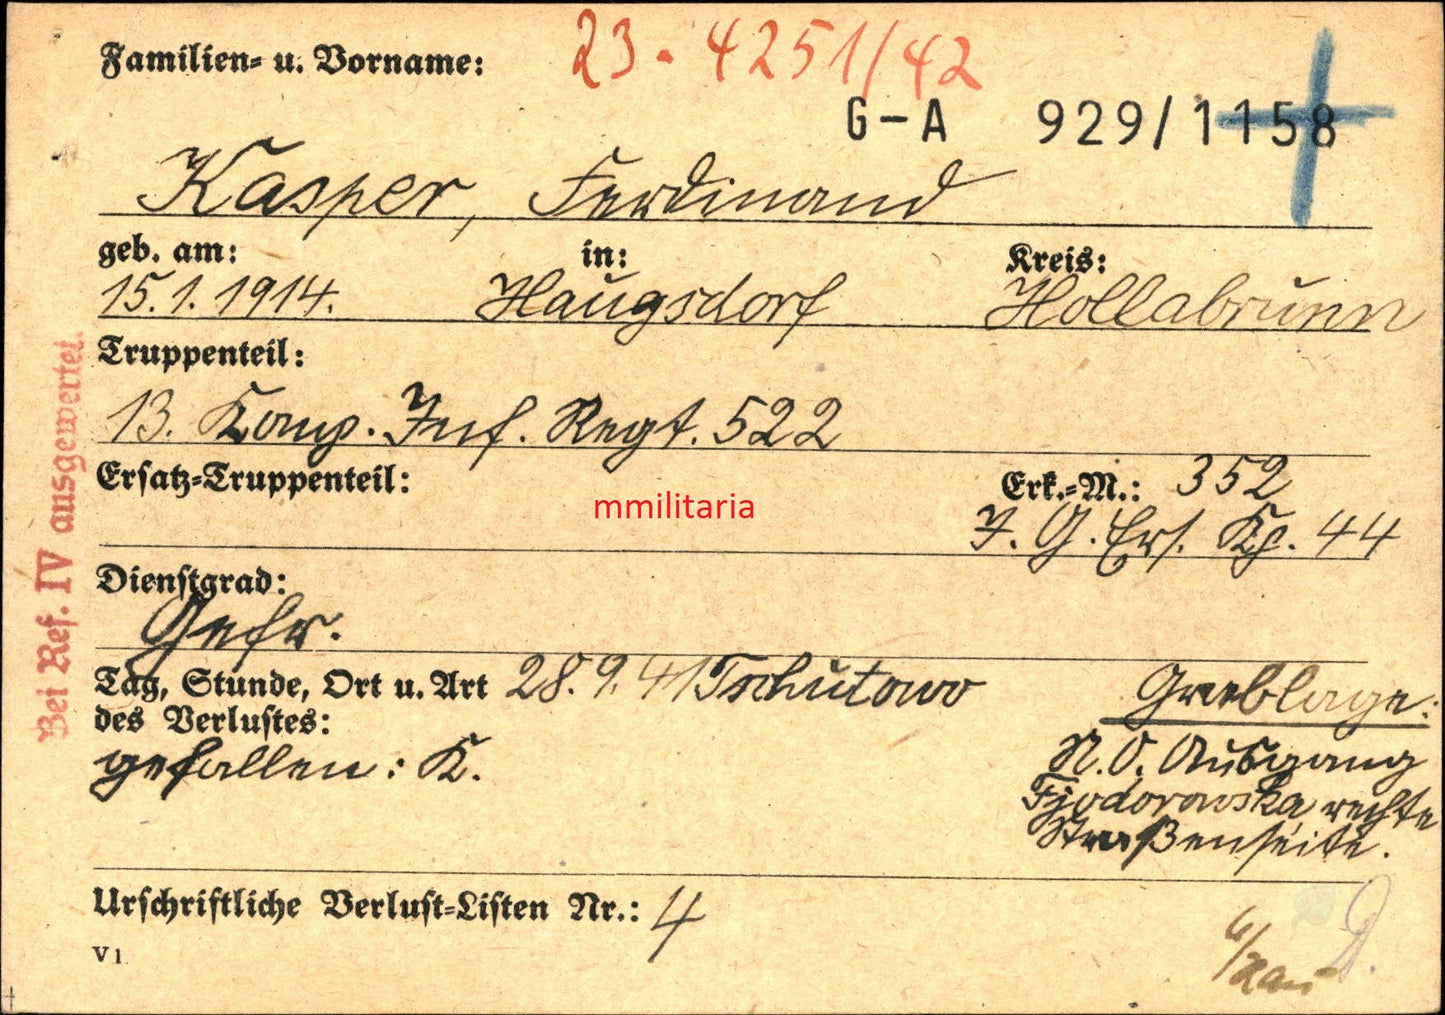 Familien- u. Vorname:
23-4251/42
G-A 929/1158
Kasper, Ferdinand
geb. am: in: Kreis:
15.1.1914. Haugsdorf Hollabrunn
Truppenteil:
13. Komp. Inf. Regt. 522
Ersatz-Truppenteil: Erk.-M.: 352
mmilitaria
J. G. Ers. Kp. 44
Dienstgrad:
Gefr.
Tag, Stunde, Ort u. Art 28.9.41 Tschutowo
des Verlustes:
gefallen: K.
Grablage:
N.O. Ausgang
Fjodorowska rechte
Straßenseite.
Urschriftliche Verlust-Listen Nr.: 4
V 1
Bei Ref. IV ausgewertet.